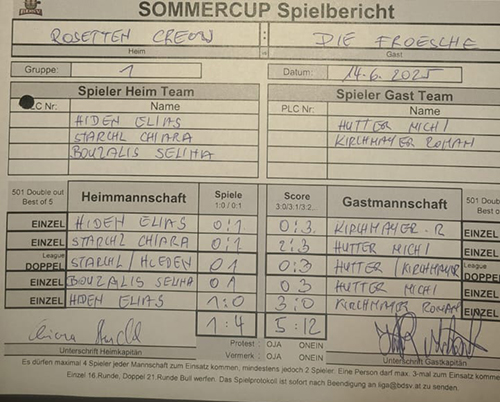 SOMMERCUP Spielbericht
ROSETTEN CREOW : DIE FROESCHE
Heim Gast
Gruppe: 1 Datum: 14.6.2025
Spieler Heim Team Spieler Gast Team
PLC Nr. Name PLC Nr. Name
HIDEN ELIAS HUTTER MICHI
STARCHL CHIARA KIRCHMAYER ROMAN
BOUZALIS SELINA
501 Double out Best of 5 Heimmannschaft Spiele 1:0 / 0:1 Score 3:0/3:1/3:2... Gastmannschaft 501 Doub Best of
EINZEL HIDEN ELIAS 0:1 0:3 KIRCHMAYER R EINZEL
EINZEL STARCHL CHIARA 0:1 2:3 HUTTER MICHI EINZEL
League DOPPEL STARCHL / HIEDEN 0 1 0:3 HUTTER / KIRCHMAYER League DOPPEL
EINZEL BOUZALIS SELINA 0 1 0:3 HUTTER MICHI EINZEL
EINZEL HIDEN ELIAS 1:0 3:0 KIRCHMAYER ROMAN EINZEL
1:4 5:12
Protest : OJA ONEIN
Unterschrift Heimkapitän Vermerk : OJA ONEIN Unterschrift Gastkapitän
Es dürfen maximal 4 Spieler jeder Mannschaft zum Einsatz kommen, mindestens jedoch 2 Spieler. Eine Person darf max. 3-mal zum Einsatz komme
Einzel 16.Runde, Doppel 21.Runde Bull werfen. Das Spielprotokoll ist sofort nach Beendigung an liga@bdsv.at zu senden.